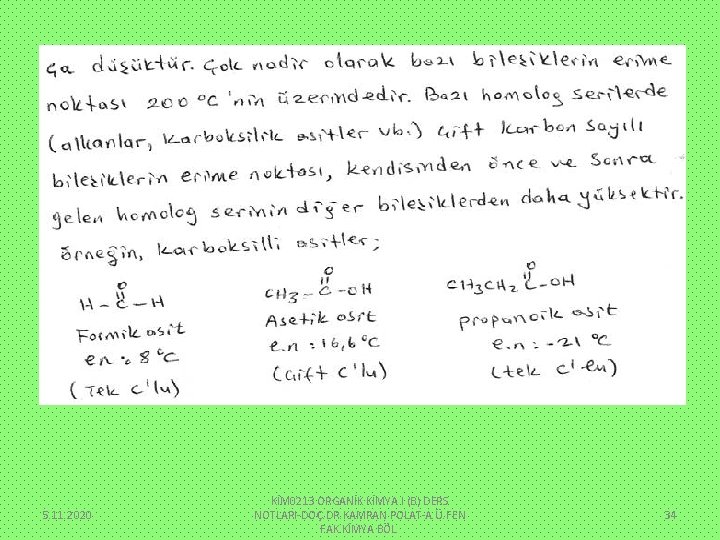 ça düşüktür. Çok nadir olarak bazı bileşiklerin erime
noktası 200 °C 'nin üzerindedir. Bazı homolog serilerde
(alkanlar, karboksilik asitler vb.) çift karbon sayılı
bileşiklerin erime noktası, kendisinden önce ve sonra
gelen homolog serinin diğer bileşiklerden daha yüksektir.
örneğin, karboksilli asitler;
O O O
H-C-H CH3-C-OH CH3CH2C-OH
Formik asit Asetik asit propanoik asit
en: 8 °C e.n: 16,6 °C e.n: -21 °C
(Tek C'lu) (Çift C'lu) (tek C'lu)
5.11.2020
KİM0213 ORGANİK KİMYA I (B) DERS
NOTLARI-DOÇ.DR.KAMRAN POLAT-A.Ü.FEN
FAK.KİMYA BÖL
34